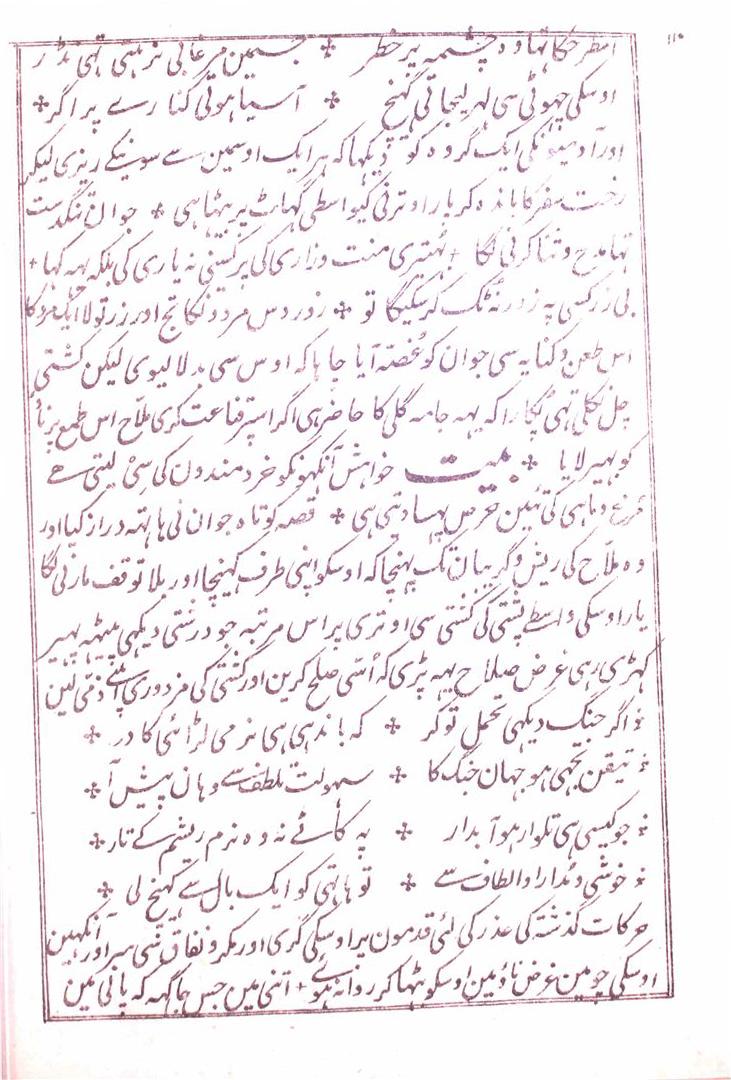 ۱۱۰
اسطرحکا تھا وہ چشمہ پر خطر ✤ جسمین مرغابی نرہتی تہی نڈر
اوسکی چہوٹی سی لہر لیجاتی کہنچ ✤ آسیا ہوتی کنارے پر اگر ✤
اور آدمیونکی ایک گروہ کو دیکہا کہ ہر ایک اوسمین سے سونیکے ریزی لیکر
رخت سفر کا باندہ کر پار اوترنی کیواسطی گہاٹ پر بیٹہا ہی ✤ جوان تنگدست
تہا مدح و ثنا کرنی لگا + بہتیری منت وزاری کی پر کسینی نہ یاری کی بلکہ یہہ کہا +
بی زر کسی پہ زور نہ کر سکیگا تو ✤ زور دس مردونکا تج اور زر تو لا ایک مرد کا
اس طعن و کنایہ سی جوان کو غصہ آیا چاہا کہ اوس سی بدلا لیوی لیکن کشتی
چل نکلی تہی پکارا کہ یہہ جامہ گلی کا حاضر ہی اگر اسپر قناعت کری ملاح اس طمع پر ناؤ
کو پہیر لایا ✤ بیت خواہش آنکہونکو خردمندون کی سی لیتی ہے
مرغ و ماہی کی تئین حرص پہسا دیتی ہی ✤ قصہ کوتاہ جوان نی ہاتہہ دراز کیا اور
وہ ملاح کی ریش و گریبان تک پہنچا کہ اوسکو اپنی طرف کہینچا اور بلا توقف مارنی لگا
یار اوسکی واسطے پشتی کی کشتی سی اوتری پر اس مرتبہ جو درشتی دیکہی پیٹہہ پہیر
کہڑی رہی غرض صلاح یہہ پڑی کہ اسّی صلح کرین اور کشتی کی مزدوری اپنے ذمّی لین
؞ اگر جنگ دیکہی تحمل تو کر ✤ کہ باندہی ہی نرمی لڑائی کا در ✤
؞ تیقن تجہی ہو جہان جنگ کا ✤ سہولت تلطف سے وہان پیش آ ✤
؞ جو کیسی ہی تلوار ہو آبدار ✤ پہ کاٹے نہ وہ نرم ریشم کے تار ✤
؞ خوشی و مدارا و الطاف سے ✤ تو ہاتہی کو ایک بال سے کہنچ لی ✤
حرکات گذشتہ کی عذر کی لئی قدمون پر اوسکی گری اور مکر و نفاق سی سر اور آنکہین
اوسکی چومین غرض ناؤ مین اوسکو بٹہا کر روانہ ہوئے + اتنی مین جس جاگہہ کہ پانی مین